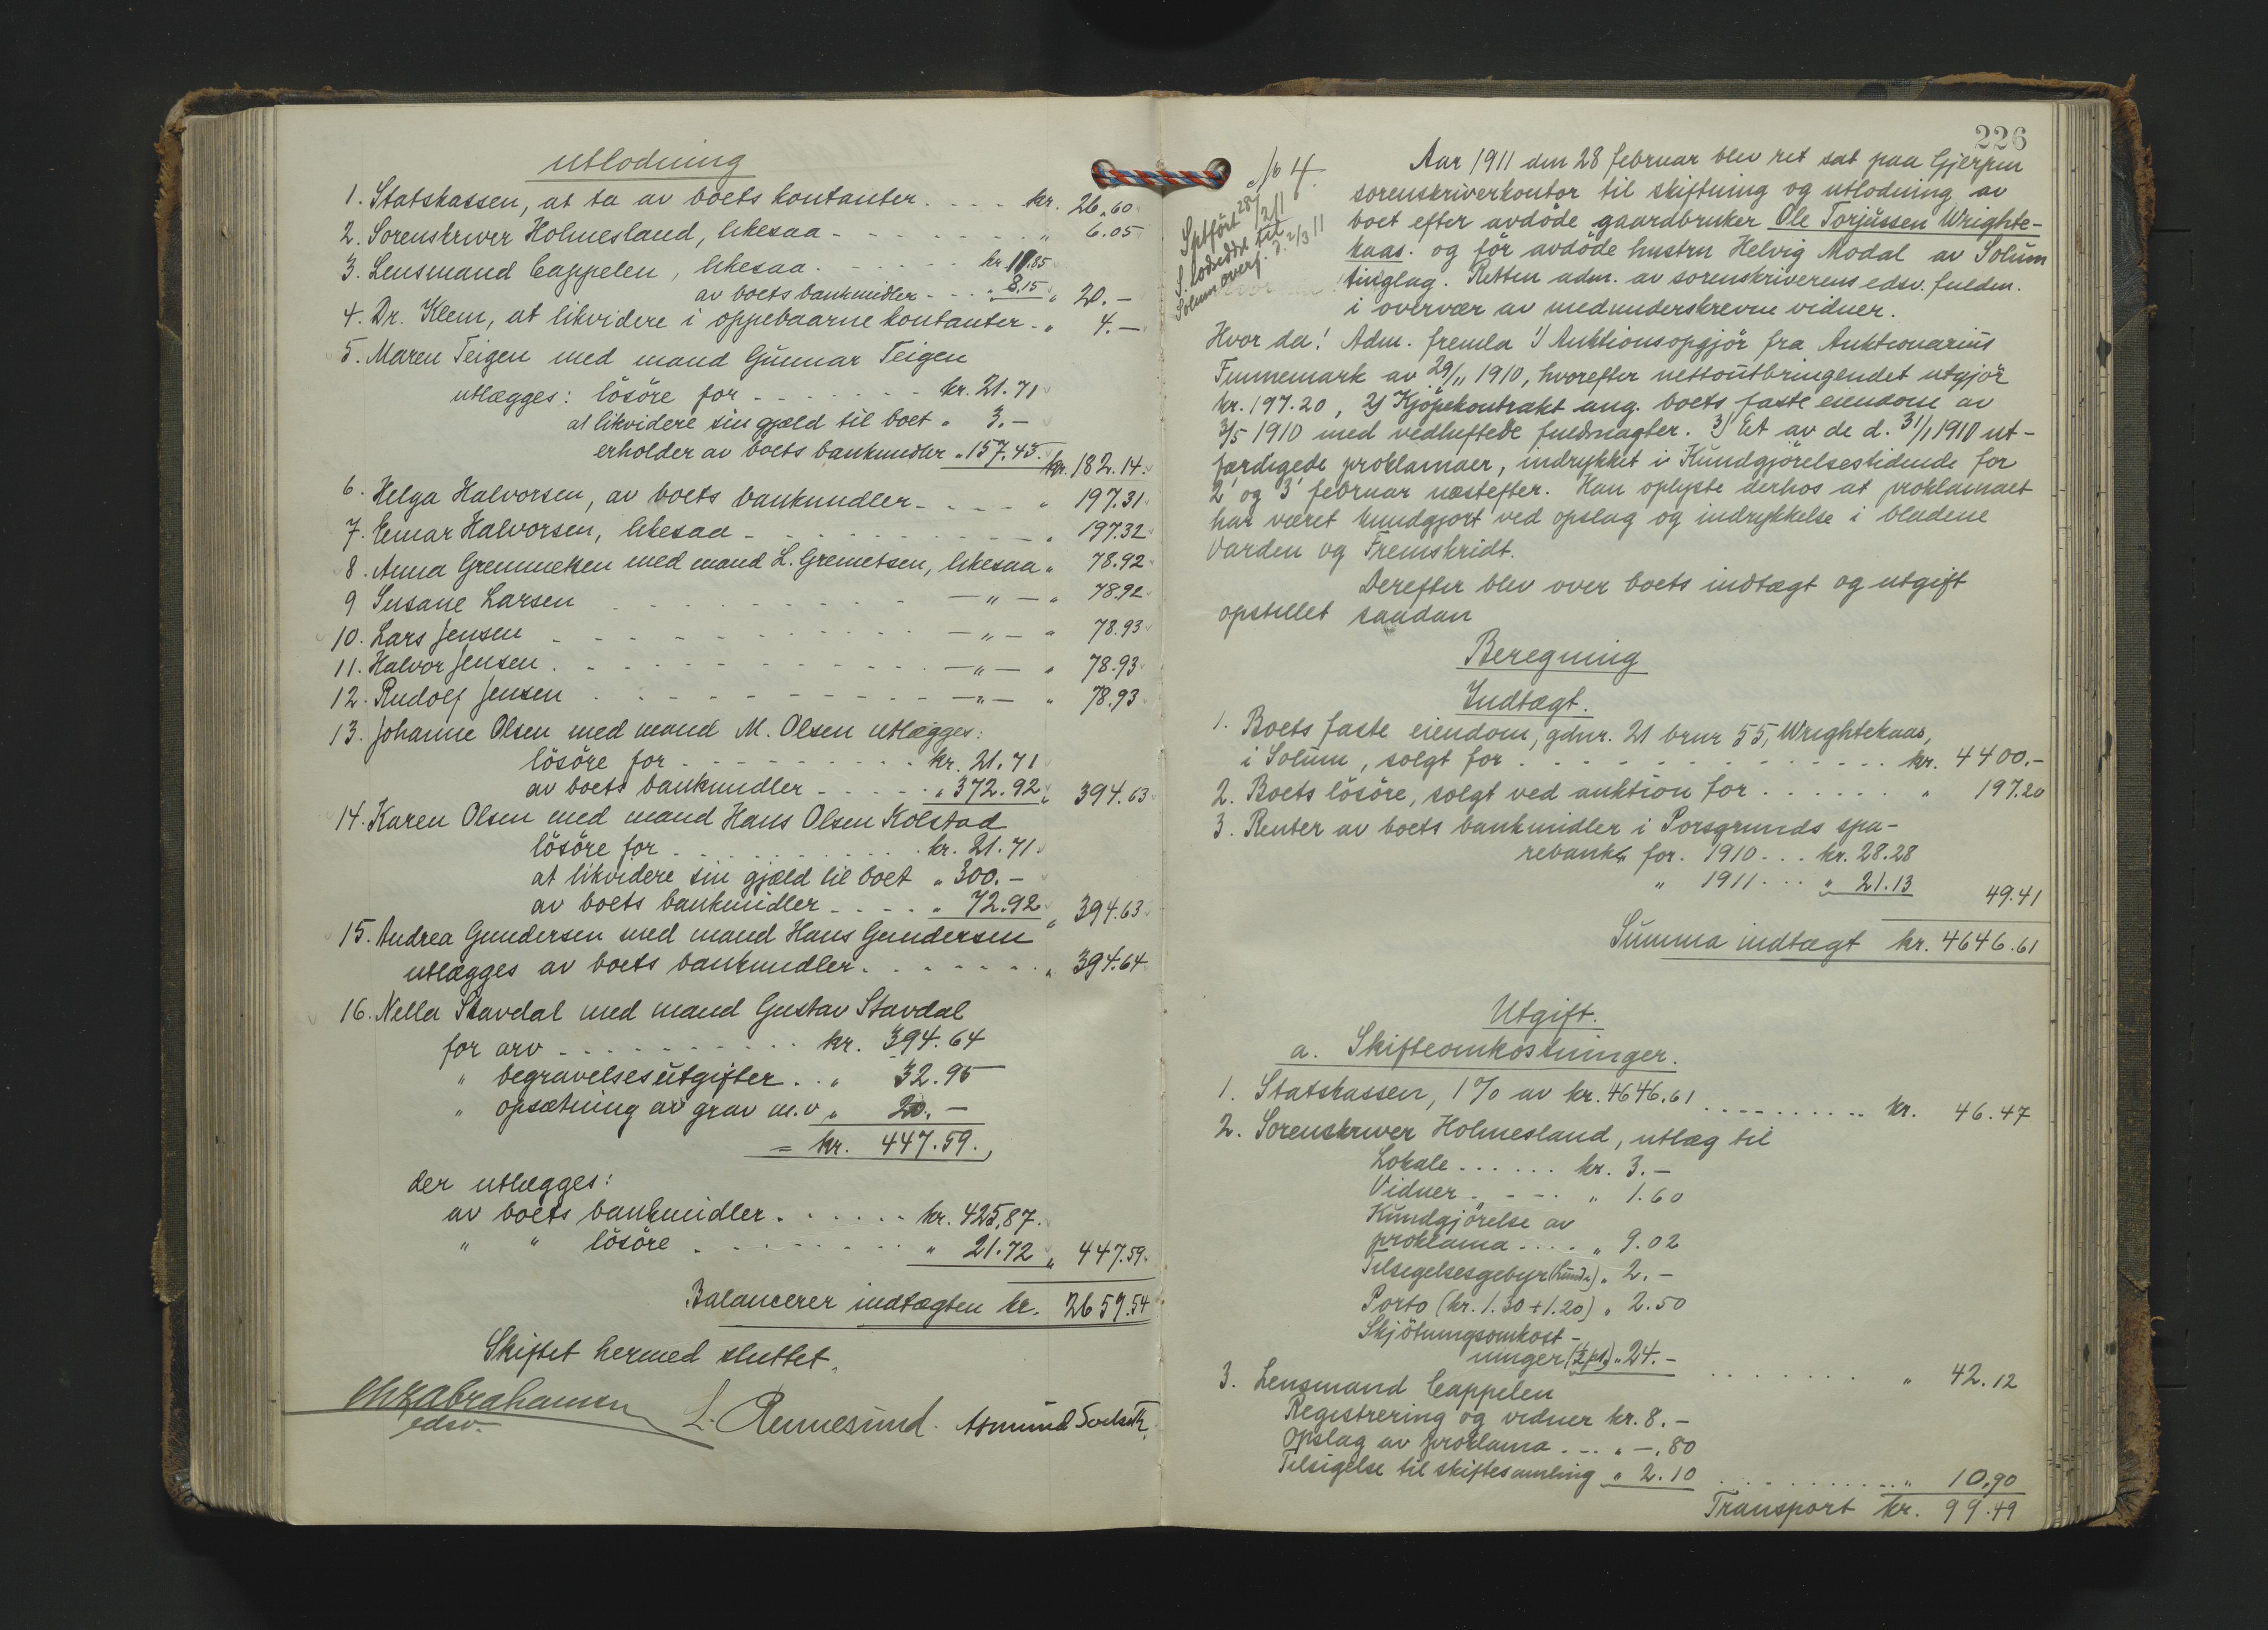 utlodning
1. Statskassen, at ta av boets kontanter . . . . kr. 26.60
2. Sorenskriver Holmesland, likesaa - - - - - - - " 6.05
3. Lensmand Cappelen, likesaa . - - - - - kr. 11.85
av boets bankmidler - - - " 8.15 " 20.-
4. Dr. Klem, at likvidere i oppebaarne kontanter - " 4.-
5. Maren Teigen med mand Gunnar Teigen
utlægges: lösöre for - - - - - - - kr. 21.71
at likvidere sin gjæld til boet " 3.-
erholder av boets bankmidler " 157.43. kr. 182.14.
6. Helga Halvorsen, av boets bankmidler - - - - " 197.31
7. Einar Halvorsen, likesaa - - - - - - - - - - " 197.32
8. Anna Gremmetsen med mand L. Gremetsen, likesaa " 78.92
9 Susane Larsen - - - - - - - - - —"— " 78.92
10. Lars Jensen - - - - - - - - - - - —"— " 78.93
11. Halvor Jensen . - - - - - - - - - - —"— " 78.93
12. Rudolf Jensen . - - - - - - - - - - —"— " 78.93
13. Johanne Olsen med mand M. Olsen utlægges:
lösöre for - - - - - - - - - kr. 21.71
av boets bankmidler - - - - - " 372.92 " 394.63
14. Karen Olsen med mand Hans Olsen Kolstad
lösöre for - - - - - - - - - kr. 21.71
at likvidere sin gjæld til boet " 300.-
av boets bankmidler - - - - " 72.92 " 394.63
15. Andrea Gundersen med mand Hans Gundersen
utlægges av boets bankmidler . - - - - - - " 394.64
16. Nella Stavdal med mand Gustav Stavdal
for arv - - - - - - - - - - kr. 394.64
" begravelsesutgifter . . " 32.95
" opsætning av grav m.v " 20.-
= kr. 447.59.,
der utlægges:
av boets bankmidler . - - - - - kr. 425,87.
" " lösöre . - - - - - - - " 21.72 " 447.59.
Balancerer indtægten kr. 2659.54
Skiftet hermed sluttet.
Abrahamsen
edsv.
L. Rennesund. Asmund
226
Aar 1911 den 28 februar blev ret sat paa Gjerpen
sorenskriverkontor til skiftning og utlodning av
boet efter avdöde gaardbruker Ole Torjussen Wrighte-
kaas. og för avdöde hustru Helvig Modal av Solum
tinglag. Retten adm. av sorenskriverens edsv. fuldm.
i overvær av medunderskrevne vidner.
28/2 11
S. lodseddel til
Solum overf. d. 2/3 11
Hvor da! Adm. fremla 1) Auktionsopgjör fra Auktionarius
Finnemark av 29/11 1910, hvorefter nettoutbringendet utgjör
kr. 197.20, 2) Kjöpekontrakt ang. boets faste eiendom av
3/5 1910 med vedheftede fuldmagter. 3) Et av de d. 31/1 1910 ut-
færdigede proklamaer, indrykket i Kundgjörelsestidende for
2' og 3' februar næstefter. Han oplyste derhos at proklamaet
har været kundgjort ved opslag og indrykkelse i bladene
Varden og Fremskridt.
Derefter blev over boets indtægt og utgift
opstillet saadan
Beregning
Indtægt.
1. Boets faste eiendom, gdnr. 21 brnr 55, Wrightekaas,
i Solum, solgt for . - - - - - - - - - . . . . kr. 4400.-
2. Boets lösöre, solgt ved auktion for . . . . . . " 197.20
3. Renter av boets bankmidler i Porsgrunds spa-
rebank for. 1910 . . . kr. 28.28
" 1911 . . . " 21.13 49.41
Summa indtægt kr. 4646.61
Utgift.
a. Skifteomkostninger.
1. Statskassen, 1% av kr. 4646.61 . - - - - - - . . kr. 46.47
2. Sorenskriver Holmesland, utlæg til
Lokale . . . . . . kr. 3.-
Vidner . - - - . " 1.60
Kundgjörelse av
proklama . . . . " 9.02
Tilsigelsesgebyr (kund.) " 2.-
Porto (kr. 1.30 + 1.20) " 2.50
Skjötningsomkost-
ninger (1/2 pt.) " 24.- . . . . . . . " 42.12
3. Lensmand Cappelen
Registrering og vidner kr. 8.-
Opslag av proklama . . . " -.80
Tilsigelse til skiftesamling " 2.10 . . . . . . . . . " 10,90
Transport kr. 99.49